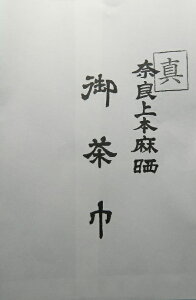 真
奈良上本麻晒
御茶巾